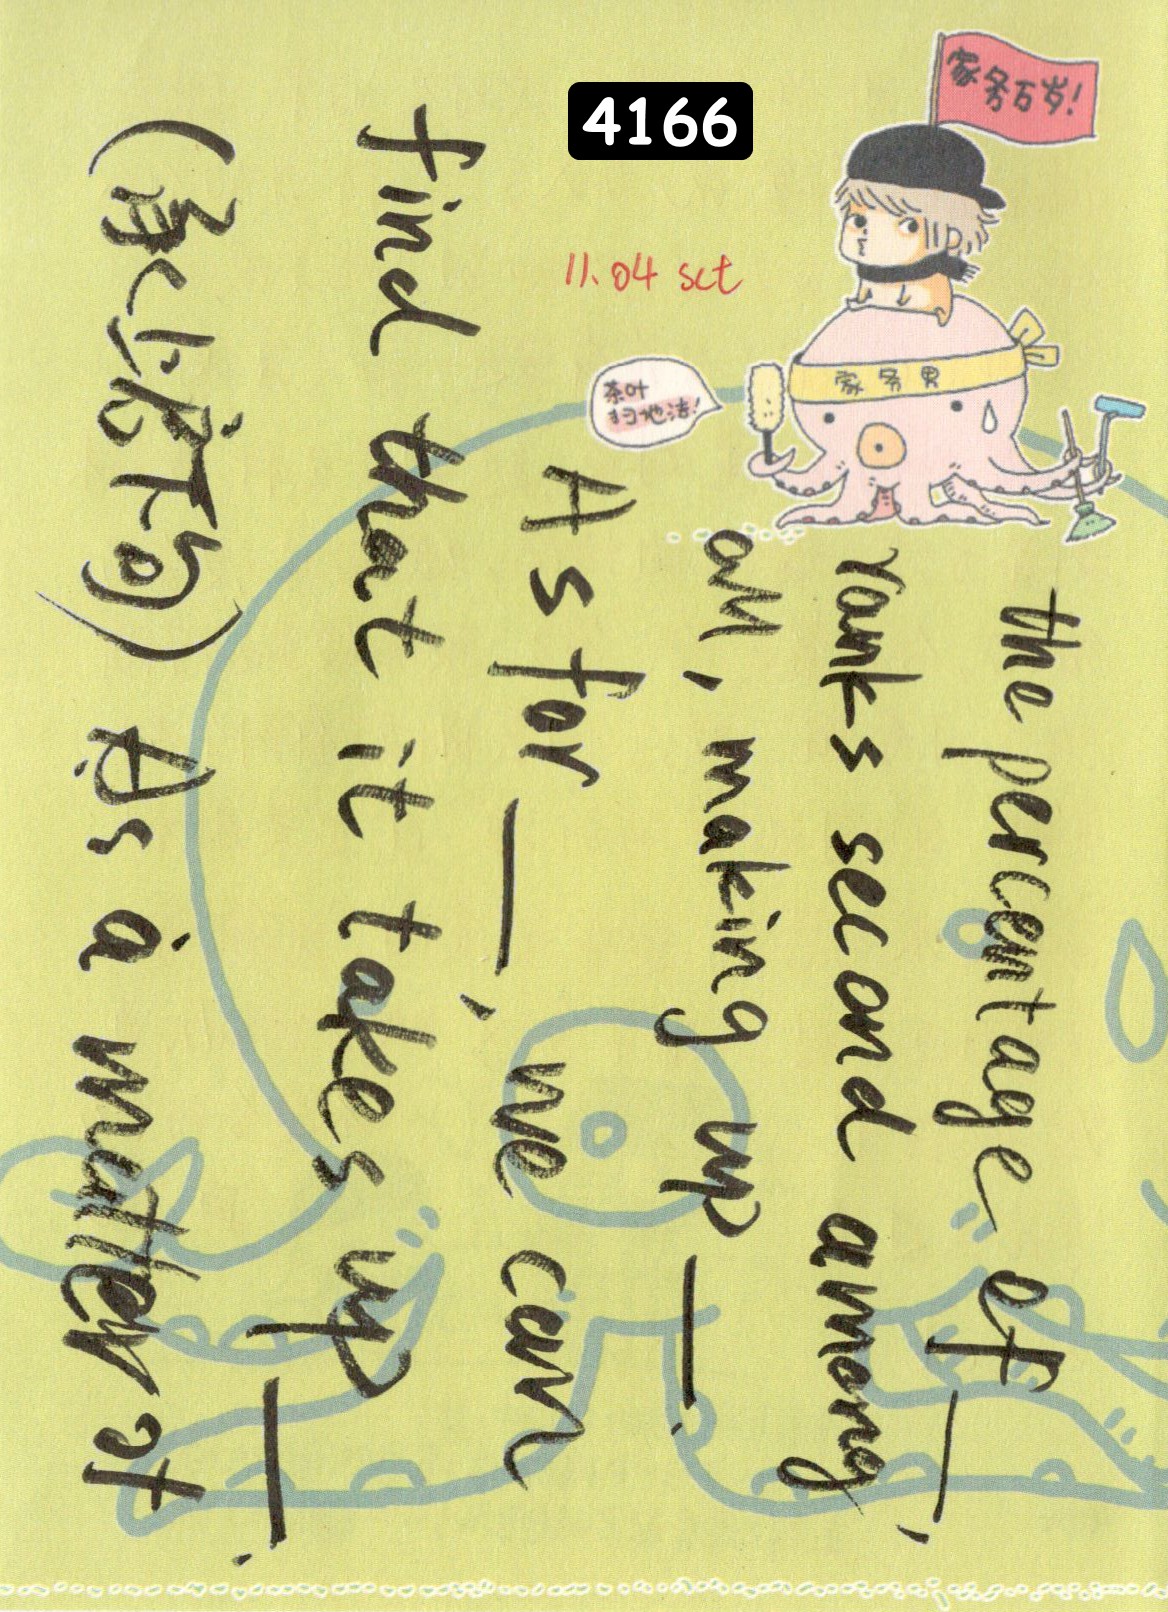 4166
家务万岁!
11.04 sat
家务男
茶叶
扫地法!
the percentage of —,
ranks second among
all, making up —.
As for —, we can
find that it takes up —.
(承上启下句) As a matter of